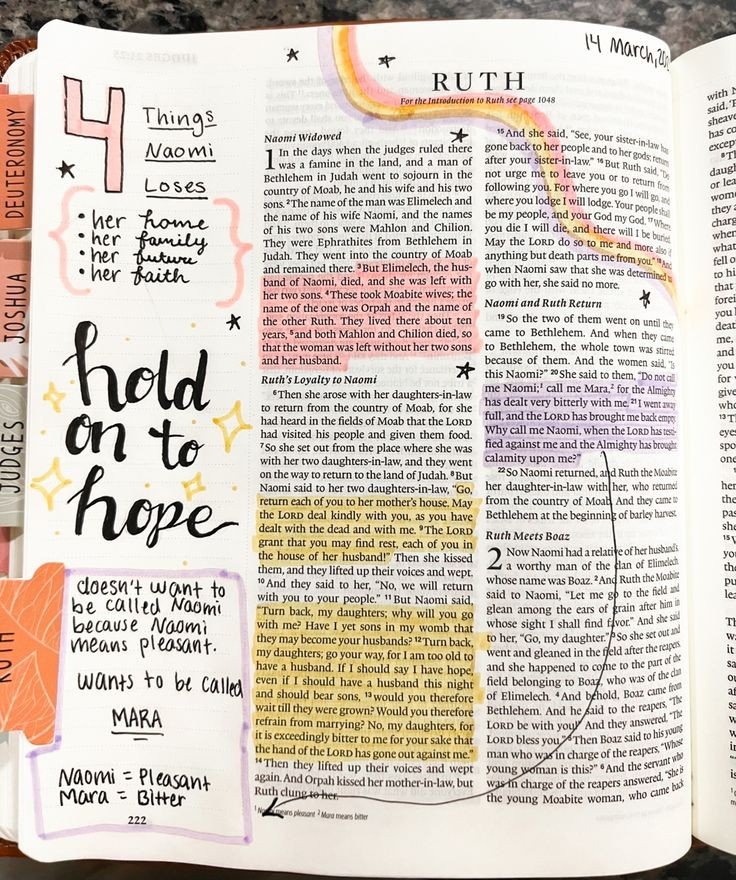 DEUTERONOMY
JOSHUA
JUDGES
RUTH
4
Things
Naomi
Loses
• her home
• her family
• her future
• her faith
hold
on to
hope
doesn't want to
be called Naomi
because Naomi
means pleasant.
wants to be called
MARA
Naomi = Pleasant
Mara = Bitter
222
14 March,
RUTH
For the Introduction to Ruth see page 1048
Naomi Widowed
1 In the days when the judges ruled there
was a famine in the land, and a man of
Bethlehem in Judah went to sojourn in the
country of Moab, he and his wife and his two
sons. 2 The name of the man was Elimelech and
the name of his wife Naomi, and the names
of his two sons were Mahlon and Chilion.
They were Ephrathites from Bethlehem in
Judah. They went into the country of Moab
and remained there. 3 But Elimelech, the hus-
band of Naomi, died, and she was left with
her two sons. 4 These took Moabite wives; the
name of the one was Orpah and the name of
the other Ruth. They lived there about ten
years, 5 and both Mahlon and Chilion died, so
that the woman was left without her two sons
and her husband.
Ruth's Loyalty to Naomi
6 Then she arose with her daughters-in-law
to return from the country of Moab, for she
had heard in the fields of Moab that the LORD
had visited his people and given them food.
7 So she set out from the place where she was
with her two daughters-in-law, and they went
on the way to return to the land of Judah. 8 But
Naomi said to her two daughters-in-law, "Go,
return each of you to her mother's house. May
the LORD deal kindly with you, as you have
dealt with the dead and with me. 9 The LORD
grant that you may find rest, each of you in
the house of her husband!" Then she kissed
them, and they lifted up their voices and wept.
10 And they said to her, "No, we will return
with you to your people." 11 But Naomi said,
Turn back, my daughters; why will you go
with me? Have I yet sons in my womb that
they may become your husbands? 12 Turn back,
my daughters; go your way, for I am too old to
have a husband. If I should say I have hope,
even if I should have a husband this night
and should bear sons, 13 would you therefore
wait till they were grown? Would you therefore
refrain from marrying? No, my daughters, for
it is exceedingly bitter to me for your sake that
the hand of the LORD has gone out against me."
14 Then they lifted up their voices and wept
again. And Orpah kissed her mother-in-law, but
Ruth clung to her.
means pleasant 2 Mara means bitter
15 And she said, "See, your sister-in-law has
gone back to her people and to her gods; return
after your sister-in-law." 16 But Ruth said, "Do
not urge me to leave you or to return from
following you. For where you go I will go, and
where you lodge I will lodge. Your people shall
be my people, and your God my God. 17 Where
you die I will die, and there will I be buried.
May the LORD do so to me and more also if
anything but death parts me from you." 18 And
when Naomi saw that she was determined to
go with her, she said no more.
Naomi and Ruth Return
19 So the two of them went on until they
came to Bethlehem. And when they came
to Bethlehem, the whole town was stirred
because of them. And the women said, "Is
this Naomi?" 20 She said to them, "Do not call
me Naomi;1 call me Mara,2 for the Almighty
has dealt very bitterly with me. 21 I went away
full, and the LORD has brought me back empty.
Why call me Naomi, when the LORD has testi-
fied against me and the Almighty has brought
calamity upon me?"
22 So Naomi returned, and Ruth the Moabite
her daughter-in-law with her, who returned
from the country of Moab. And they came to
Bethlehem at the beginning of barley harvest.
Ruth Meets Boaz
2 Now Naomi had a relative of her husband's,
a worthy man of the clan of Elimelech,
whose name was Boaz. 2 And Ruth the Moabite
said to Naomi, "Let me go to the field and
glean among the ears of grain after him in
whose sight I shall find favor." And she said
to her, "Go, my daughter." 3 So she set out and
went and gleaned in the field after the reapers,
and she happened to come to the part of the
field belonging to Boaz, who was of the clan
of Elimelech. 4 And behold, Boaz came from
Bethlehem. And he said to the reapers, "The
LORD be with you!" And they answered, "The
LORD bless you." 5 Then Boaz said to his young
man who was in charge of the reapers, "Whose
young woman is this?" 6 And the servant who
was in charge of the reapers answered, "She is
the young Moabite woman, who came back